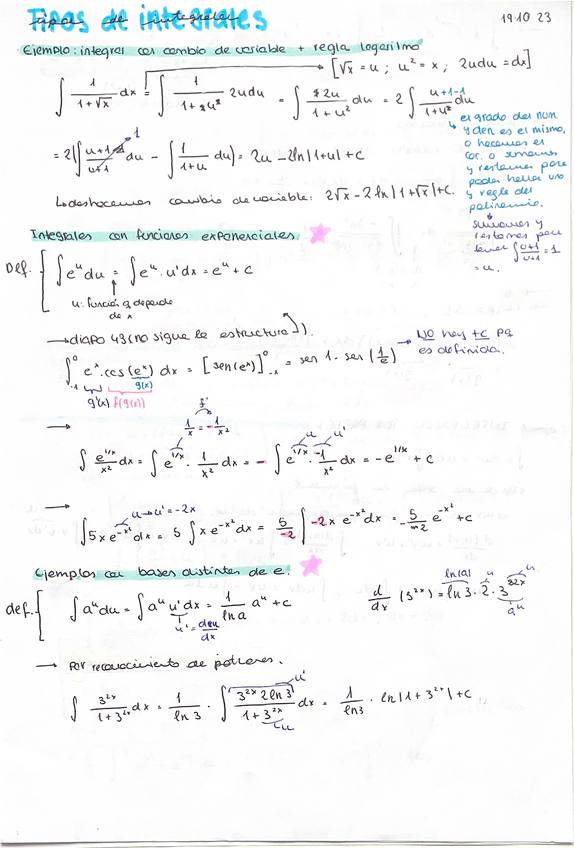 Tipos de integrales
19·10·23
Ejemplo: integral con cambio de variable + regla logaritmo
[√x = u ; u² = x ; 2udu = dx]
∫ 1/(1+√x) dx = ∫ 1/(1+u) 2udu = ∫ 2u/(1+u) du = 2∫ (u+1-1)/(1+u) du
↳ el grado del num. y den es el mismo, o hacemos el
o sumamos
y restamos para
poder hallar
y regla del
polinomio.
sumamos y
restamos para
tener ∫ (u+1)/(u+1) = 1
= u.
= 2(∫ (u+1)/(u+1) du - ∫ 1/(1+u) du) = 2u - 2ln|1+u| + c
1
↳ deshacemos cambio de variable: 2√x - 2 ln|1+√x|+c.
Integrales con funciones exponenciales.
Def. [ ∫ e^u du = ∫ e^u · u' dx = e^u + c
u: función q depende
de x
→ diapo 43 (no sigue la estructura).
∫_{-1}^{0} e^x · cos(e^x) dx = [sen(e^x)]_{-1}^{0} = sen 1 - sen (1/e) → NO hay +c pq
es definida.
g'(x) f(g(x)) g(x)
f'
1/x = -1/x²
→
∫ e^{1/x}/x² dx = ∫ e^{1/x} · 1/x² dx = - ∫ e^{1/x} · -1/x² dx = -e^{1/x} + c
u u'
→
u → u' = -2x
∫ 5xe^{-x²} dx = 5 ∫ xe^{-x²} dx = 5/-2 ∫ -2x e^{-x²} dx = -5/2 e^{-x²} + c
Ejemplos con bases distintas de e.
def. { ∫ a^u du = ∫ a^u u' dx = 1/ln a a^u + c
u' = du/dx
d/dx (3^{2x}) = ln 3 · 2 · 3^{2x}
ln(a) u' u
a^u
→ Por reconocimiento de patrones.
∫ 3^{2x}/(1+3^{2x}) dx = 1/ln 3 · ∫ (3^{2x} 2ln 3)/(1+3^{2x}) dx = 1/ln3 · ln|1+3^{2x}|+c
u'
u